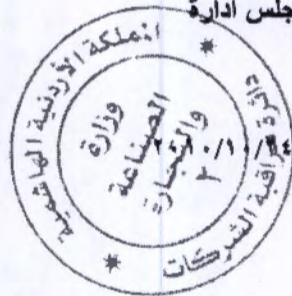 جلس ادارة
المملكة الأردنية الهاشمية
وزارة
الصناعة
والتجارة
٢
دائرة مراقبة الشركات